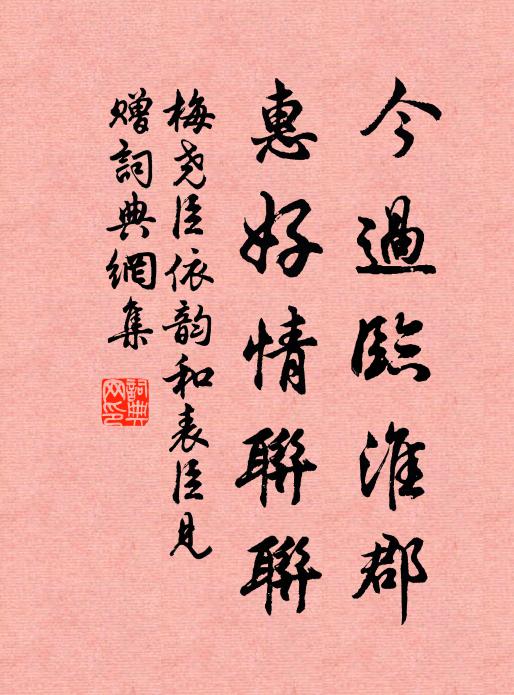 今過臨淮郡
惠好情聯聯
梅堯臣依韵和表臣見
贈詞典網集
詞典
网印